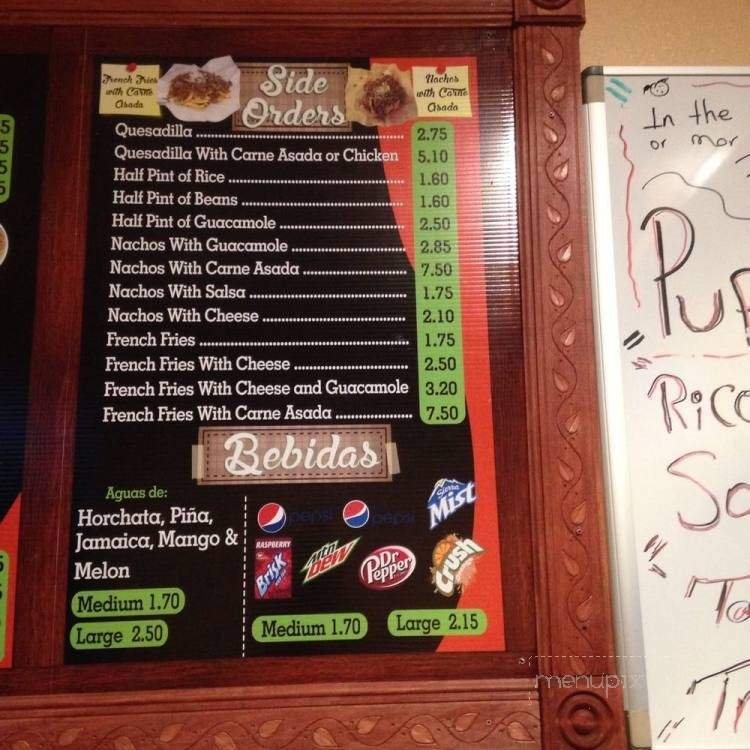 French Fries
with Carne
Asada
Side
Orders
Nachos
with Carne
Asada
Quesadilla 2.75
Quesadilla With Carne Asada or Chicken 5.10
Half Pint of Rice 1.60
Half Pint of Beans 1.60
Half Pint of Guacamole 2.50
Nachos With Guacamole 2.85
Nachos With Carne Asada 7.50
Nachos With Salsa 1.75
Nachos With Cheese 2.10
French Fries 1.75
French Fries With Cheese 2.50
French Fries With Cheese and Guacamole 3.20
French Fries With Carne Asada 7.50
Bebidas
Aguas de:
Horchata, Piña,
Jamaica, Mango &
Melon
Medium 1.70
Large 2.50
pepsi pepsi
Sierra
Mist
RASPBERRY
Brisk
mtn
DEW
Dr
Pepper
Crush
Medium 1.70 Large 2.15
In the
or mor
Rice
menupix